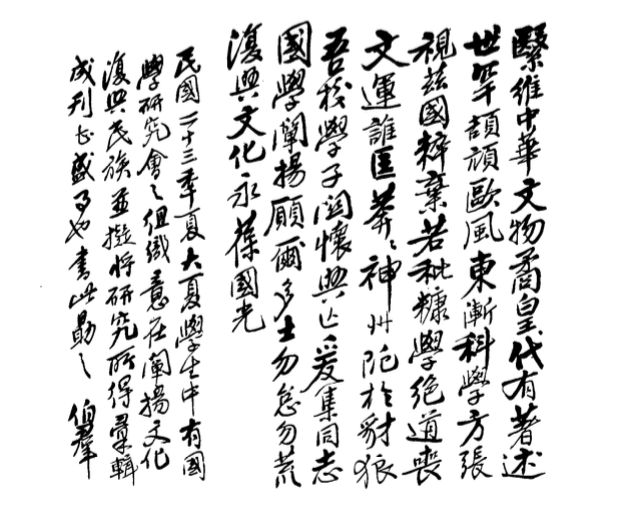 繄維中華文物矞皇代有著述
世罕頡頏歐風東漸科學方張
視茲國粹棄若秕糠學絕道喪
文運誰匡莽〻神州阨於豺狼
吾校學子関懷興亡爰集同志
國學闡揚願爾多士勿怠勿荒
復興文化永葆國光
民國二十三季夏大夏學生中有國
學研究會之組織意在闡揚文化
復興民族並擬將研究所得彙輯
成刊亦盛事也書此勗之 伯羣